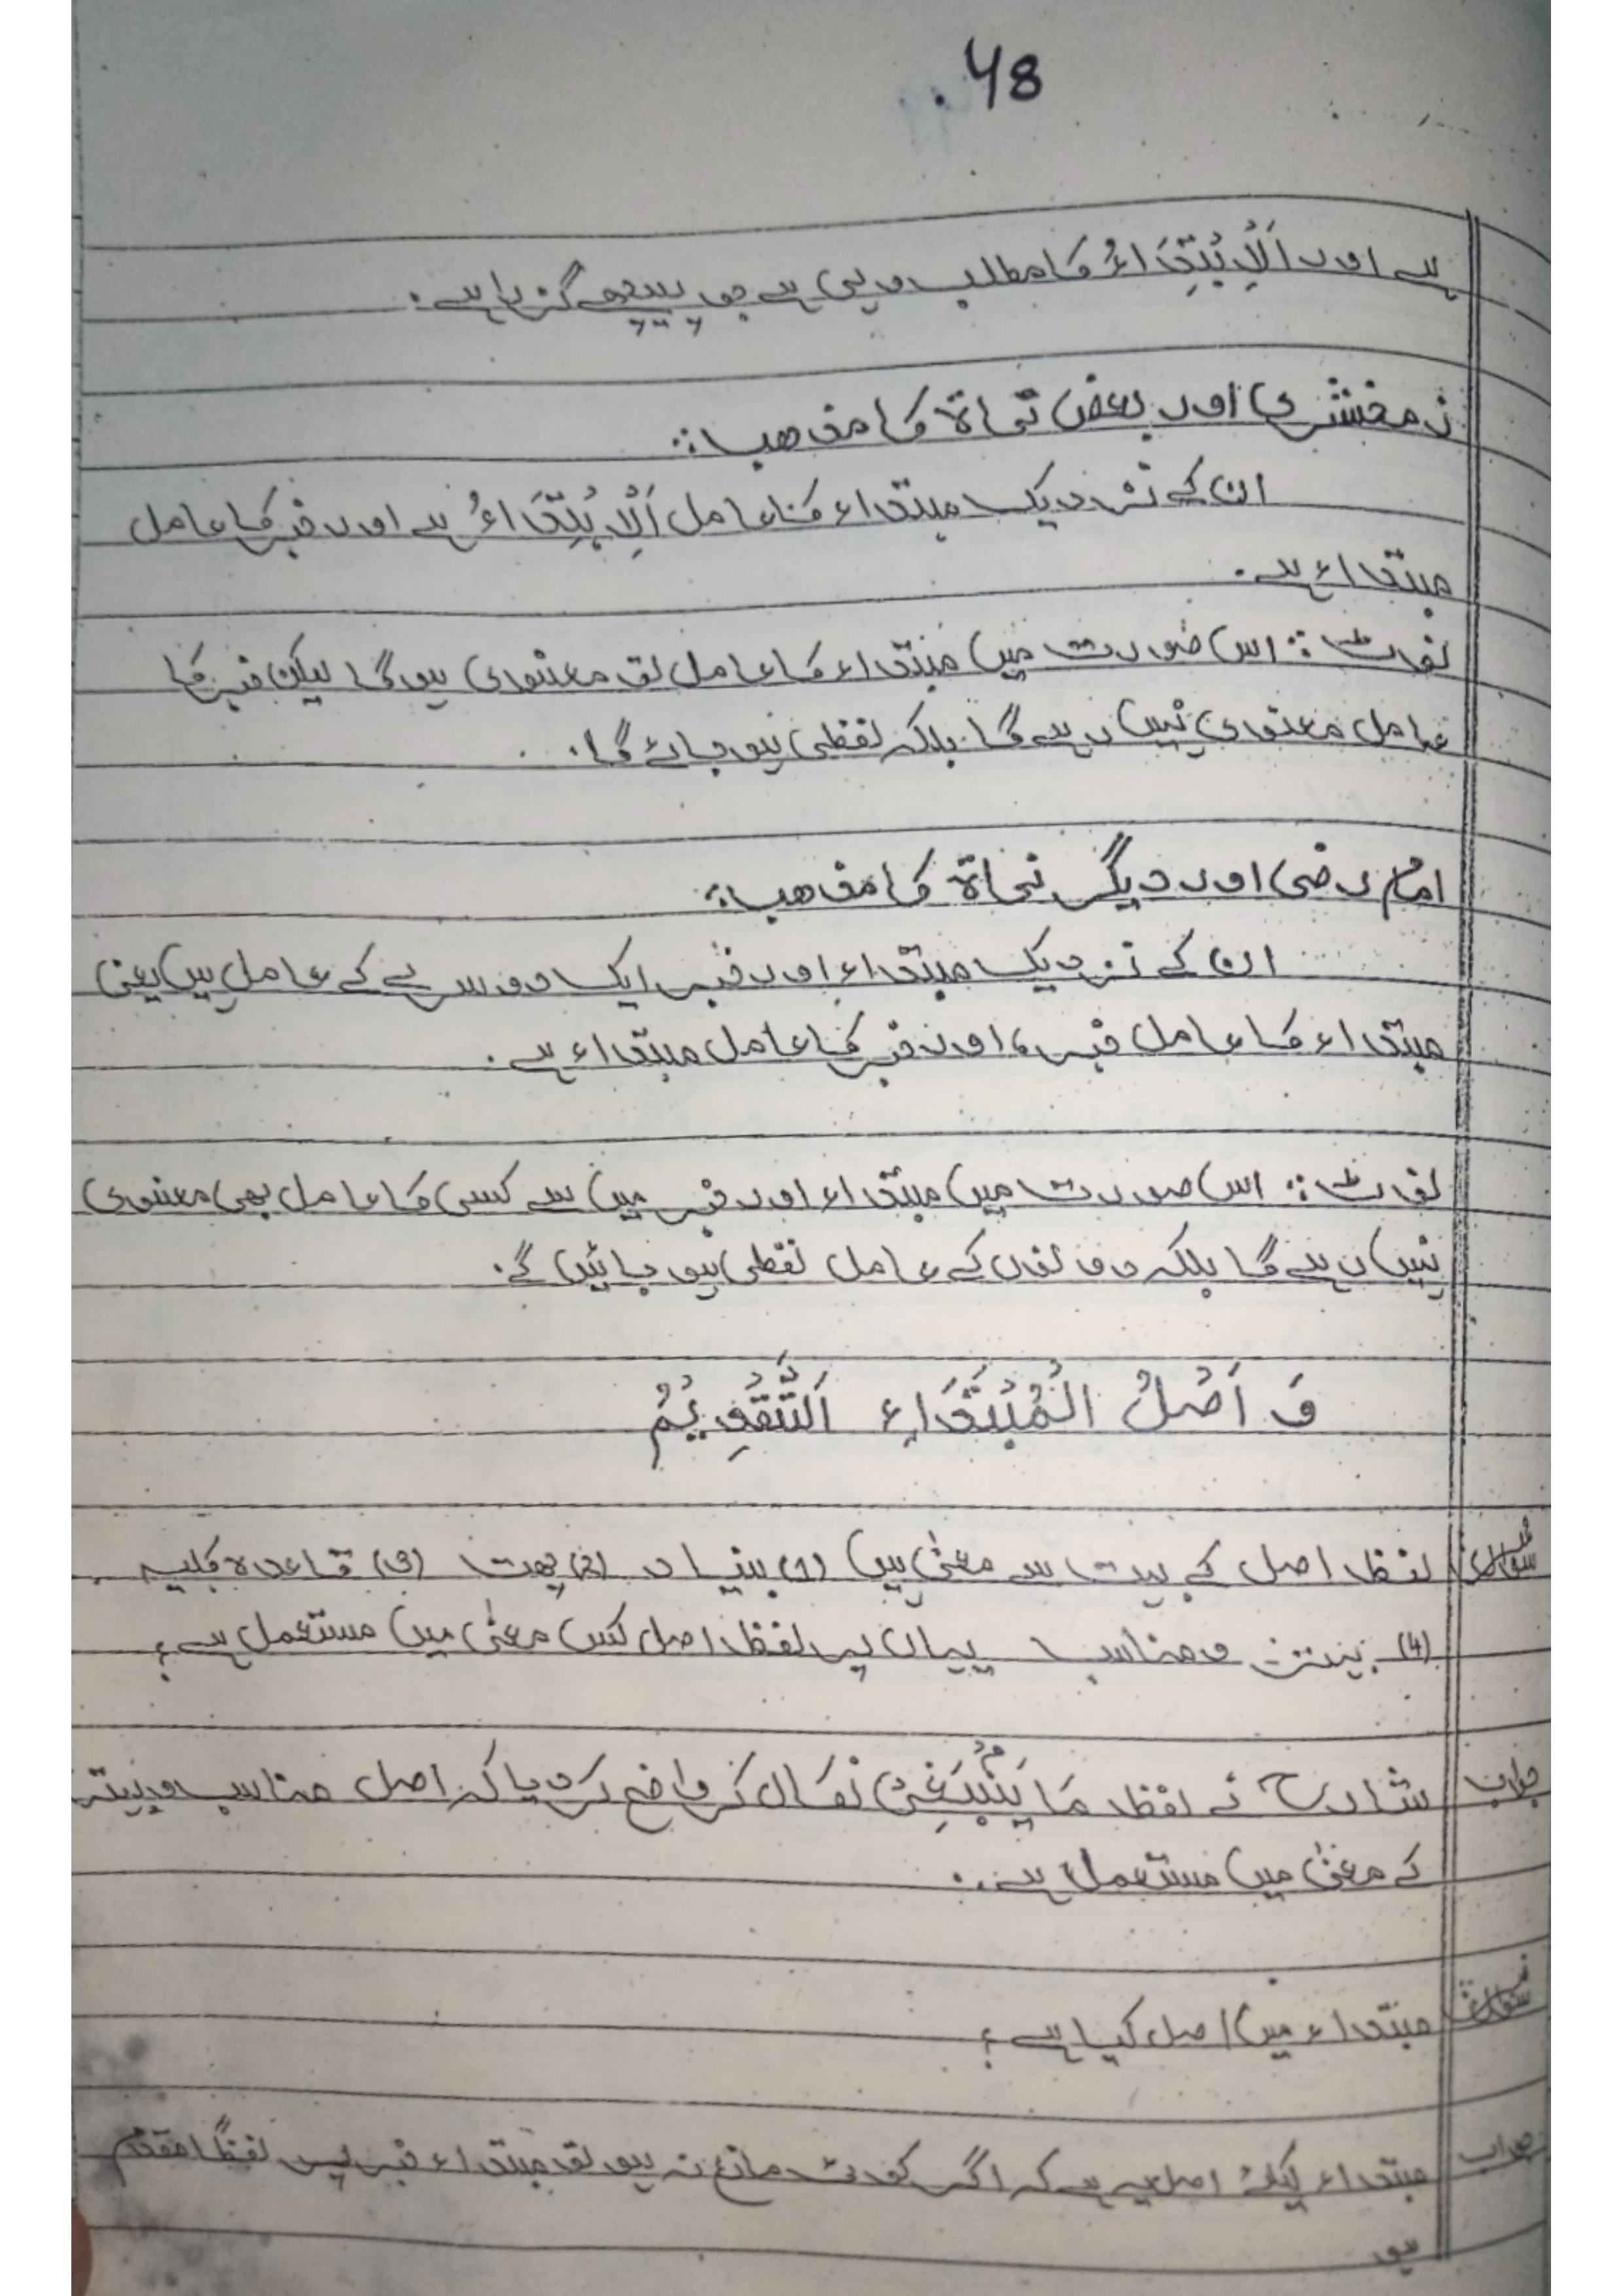 48.
ہے اور اَلْاِبْتِدَاءُ کا مطلب وہی ہے جو پیچھے گزرا ہے۔
زمخشری اور بعض نحاۃ کا مذھب:
ان کے نزدیک مبتداء کا عامل اَلْاِبْتِدَاءُ ہے اور خبر کا عامل
مبتداء ہے۔
نوٹ: اس صورت میں مبتداء کا عامل تو معنوی ہوگا لیکن خبر کا
عامل معنوی نہیں رہے گا بلکہ لفظی ہو جائے گا۔
امام رضی اور دیگر نحاۃ کا مذھب:
ان کے نزدیک مبتداء اور خبر ایک دوسرے کے عامل ہیں یعنی
مبتداء کا عامل خبر، اور خبر کا عامل مبتداء ہے۔
نوٹ: اس صورت میں مبتداء اور خبر میں سے کسی کا عامل بھی معنوی
نہیں رہے گا بلکہ دونوں کے عامل لفظی ہو جائیں گے۔
وَ اَصْلُ الْمُبْتَدَاءِ اَلتَّقْدِیْمُ
سوال لفظ اصل کے بہت سے معنیٰ ہیں (1) بنیاد (2) جہت (3) قاعدہ کلیہ
(4) بہتر و مناسب یہاں پر لفظ اصل کس معنیٰ میں مستعمل ہے؟
جواب شارح نے لفظ مَا یَنْبَغِیْ نکال کر واضح کر دیا کہ اصل مناسب و بہتر
کے معنیٰ میں مستعمل ہے۔
سوال مبتداء میں اصل کیا ہے؟
جواب مبتداء کیلئے اصل یہ ہے کہ اگر کوئی مانع نہ ہو تو مبتداء خبر پر لفظًا مقدم
ہو